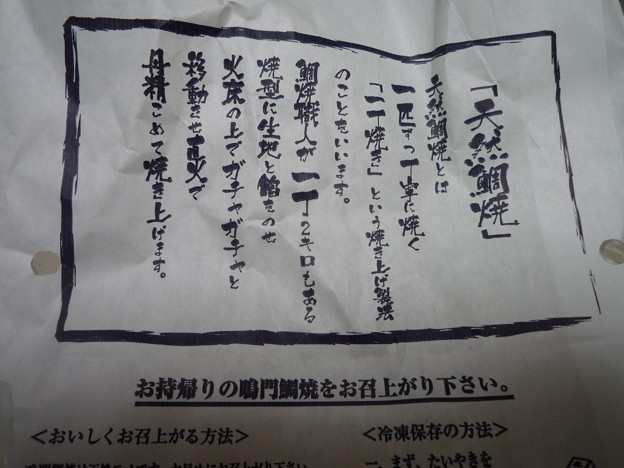 「天然鯛焼」
天然鯛焼とは
一匹ずつ丁寧に焼く
「一丁焼き」という焼き上げ製法
のことをいいます。
鯛焼職人が一丁2キロもある
焼型に生地と餡をのせ
火床の上でガチャガチャと
移動させ直火で
丹精こめて焼き上げます。
お持帰りの鳴門鯛焼をお召上がり下さい。
＜おいしくお召上がる方法＞
＜冷凍保存の方法＞
一、まず、たいやきを